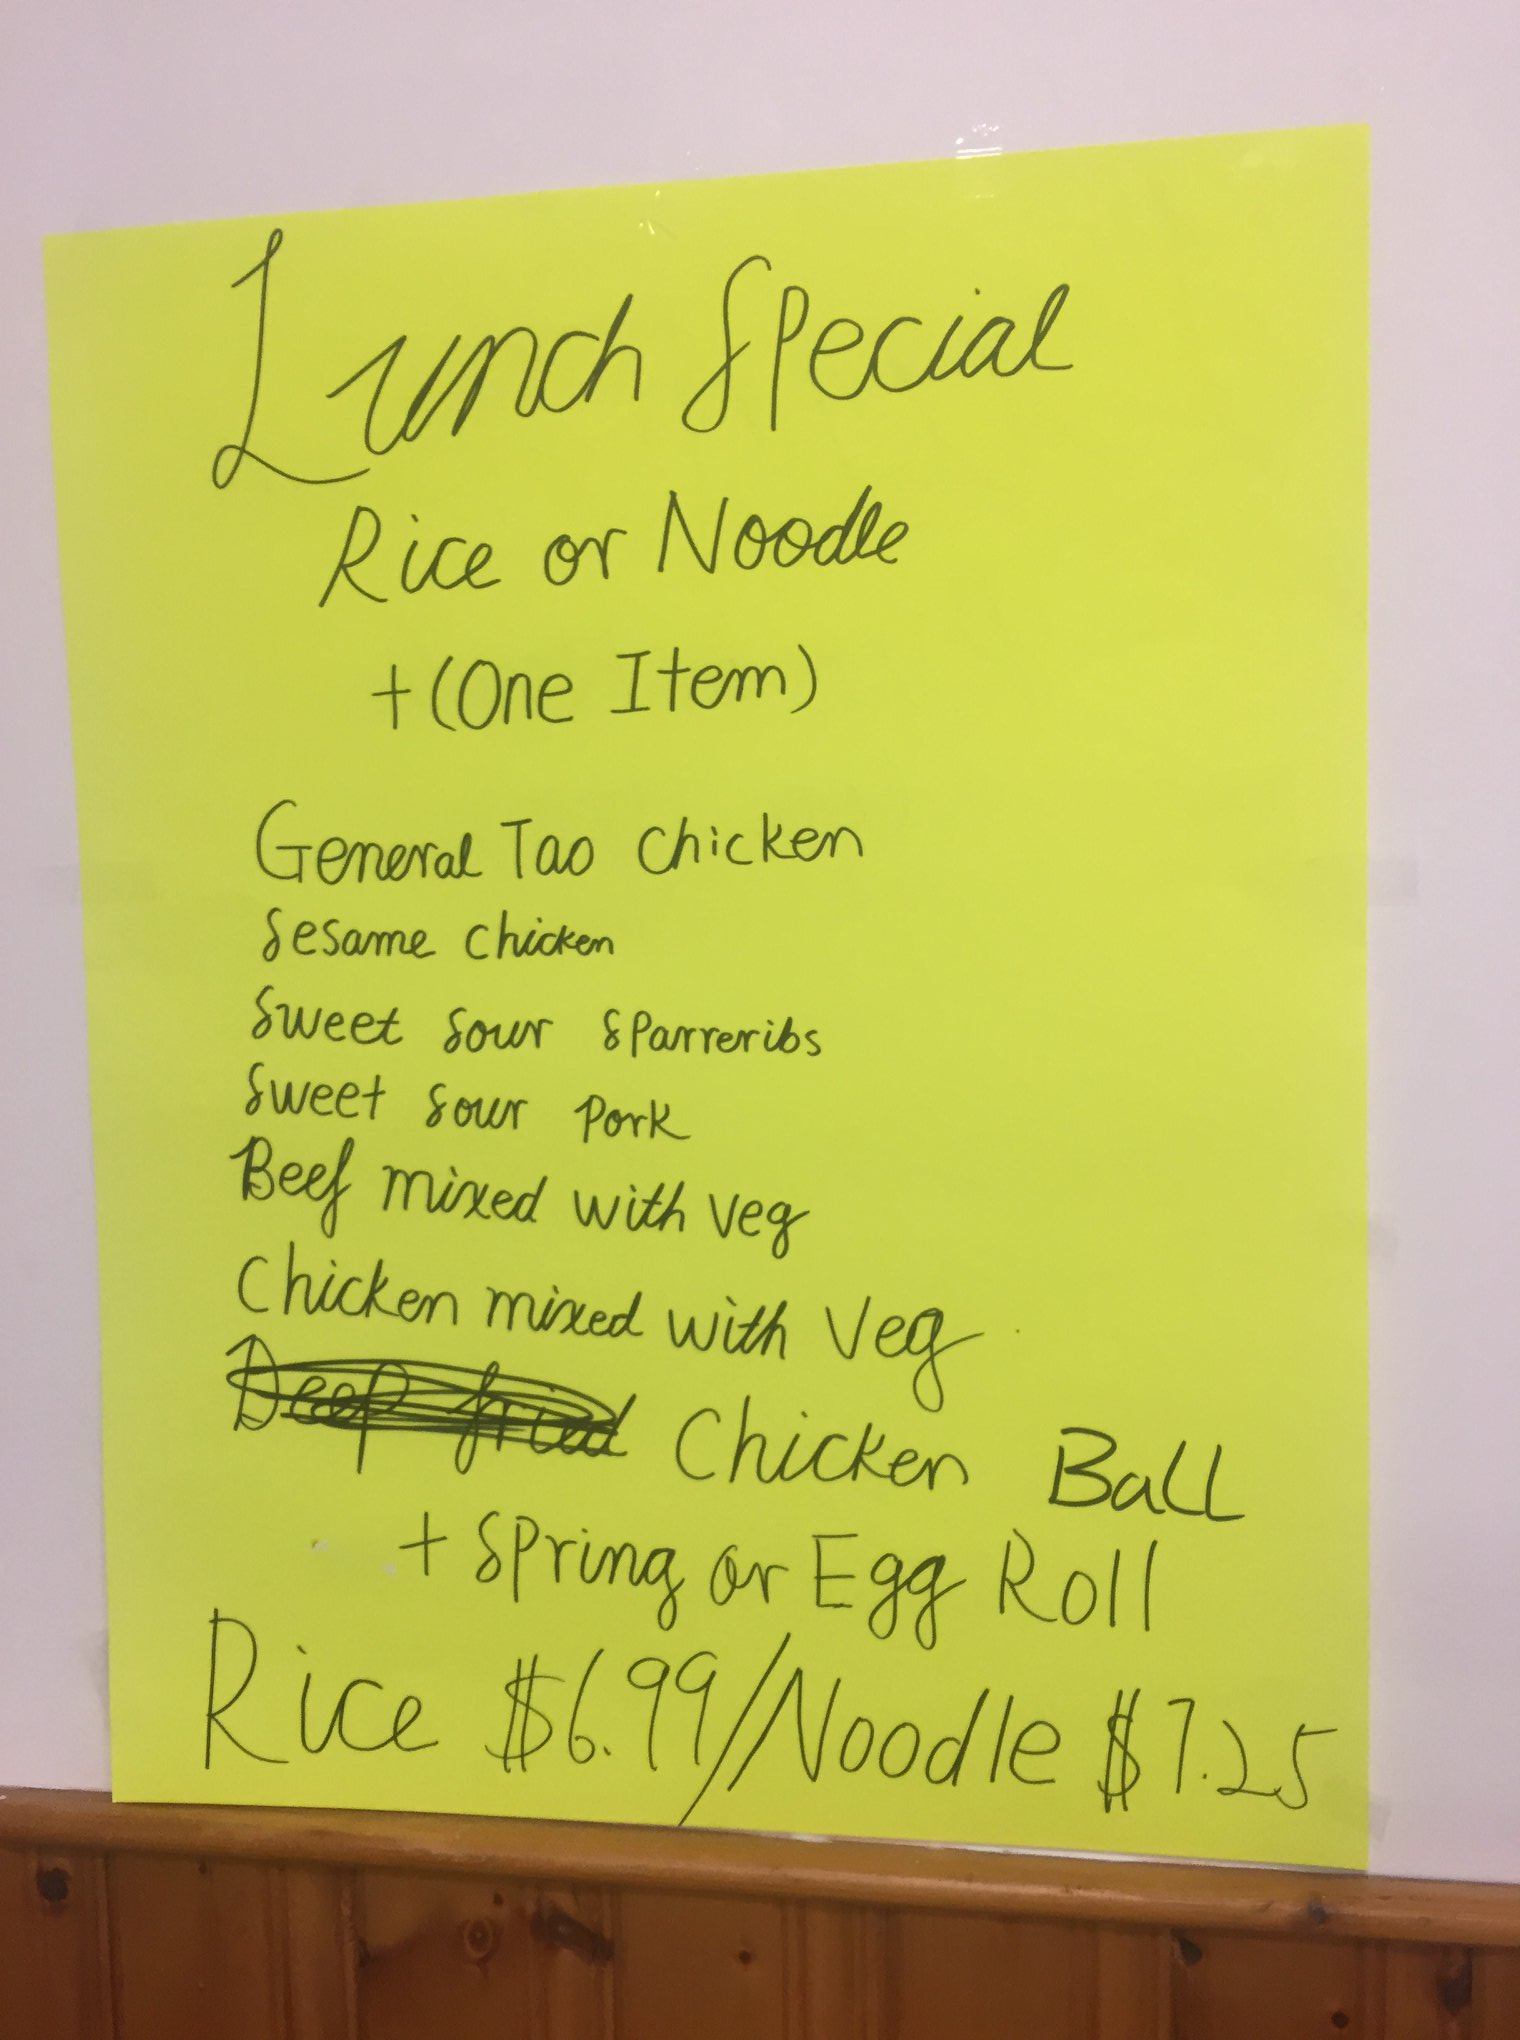 Lunch Special
Rice or Noodle
+ (One Item)
General Tao Chicken
Sesame Chicken
Sweet Sour Sparreribs
Sweet Sour Pork
Beef mixed with veg
Chicken mixed with Veg
Deep fried Chicken Ball
+ Spring or Egg Roll
Rice $6.99/Noodle $7.25